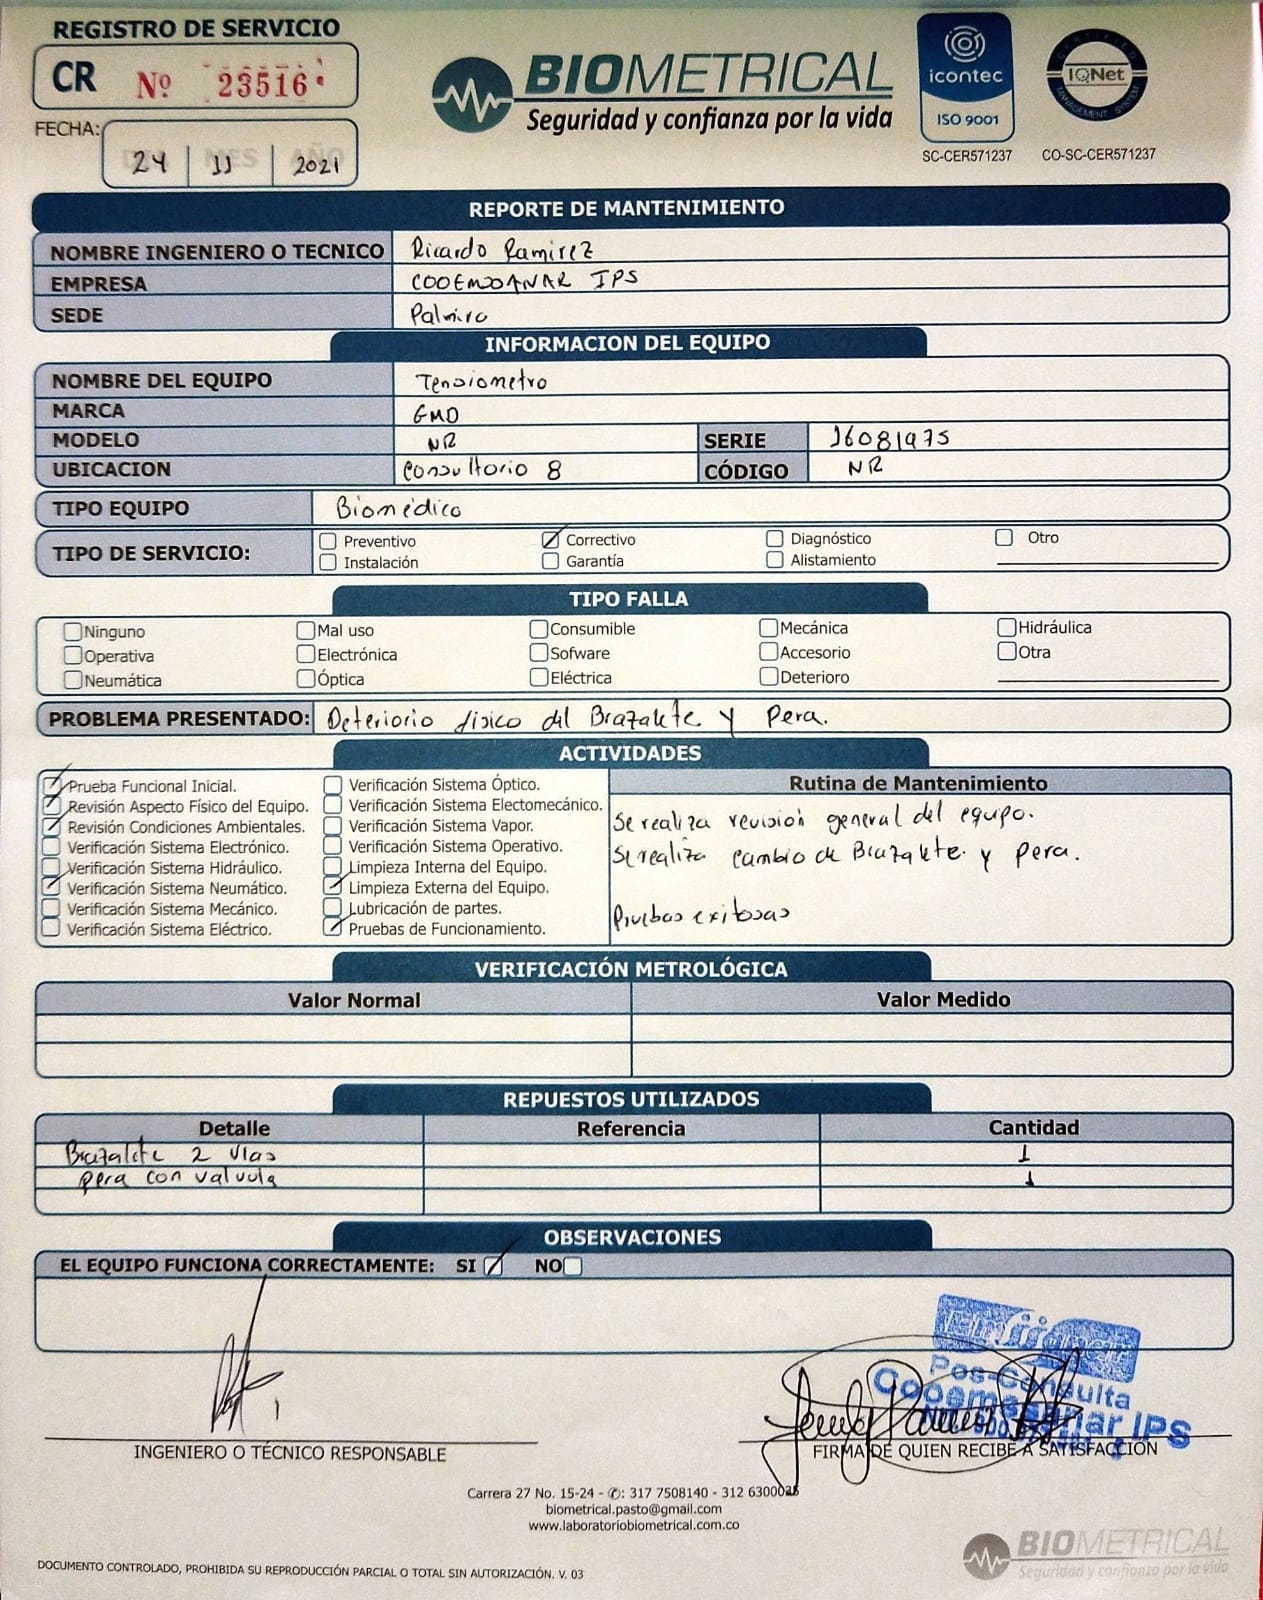 REGISTRO DE SERVICIO
CR Nº 23516
BIOMETRICAL
Seguridad y confianza por la vida
icontec
ISO 9001
SC-CER571237
CERTIFIED
IQNet
MANAGEMENT SYSTEM
CO-SC-CER571237
FECHA: DIA MES AÑO
24 11 2021
REPORTE DE MANTENIMIENTO
NOMBRE INGENIERO O TECNICO Ricardo Ramirez
EMPRESA COOEMSSANAR IPS
SEDE Palmira
INFORMACION DEL EQUIPO
NOMBRE DEL EQUIPO Tensiometro
MARCA GMD
MODELO NR SERIE 16081975
UBICACION Consultorio 8 CÓDIGO NR
TIPO EQUIPO Biomédico
TIPO DE SERVICIO: Preventivo Correctivo Diagnóstico Otro
Instalación Garantía Alistamiento
TIPO FALLA
Ninguno Mal uso Consumible Mecánica Hidráulica
Operativa Electrónica Sofware Accesorio Otra
Neumática Óptica Eléctrica Deterioro
PROBLEMA PRESENTADO: Deteriorio fisico del Brazalete y Pera.
ACTIVIDADES
Prueba Funcional Inicial.
Revisión Aspecto Físico del Equipo.
Revisión Condiciones Ambientales.
Verificación Sistema Electrónico.
Verificación Sistema Hidráulico.
Verificación Sistema Neumático.
Verificación Sistema Mecánico.
Verificación Sistema Eléctrico.
Verificación Sistema Óptico.
Verificación Sistema Electomecánico.
Verificación Sistema Vapor.
Verificación Sistema Operativo.
Limpieza Interna del Equipo.
Limpieza Externa del Equipo.
Lubricación de partes.
Pruebas de Funcionamiento.
Rutina de Mantenimiento
Se realiza revisión general del equipo.
Se realiza cambio de Brazalete y pera.
Pruebas exitosas
VERIFICACIÓN METROLÓGICA
Valor Normal Valor Medido
REPUESTOS UTILIZADOS
Detalle Referencia Cantidad
Brazalete 2 vias 1
pera con valvula 1
OBSERVACIONES
EL EQUIPO FUNCIONA CORRECTAMENTE: SI NO
Pos-Consulta
Cooemssanar IPS
INGENIERO O TÉCNICO RESPONSABLE
FIRMA DE QUIEN RECIBE A SATISFACCIÓN
Carrera 27 No. 15-24 - ✆: 317 7508140 - 312 6300025
biometrical.pasto@gmail.com
www.laboratoriobiometrical.com.co
BIOMETRICAL
Seguridad y confianza por la vida
DOCUMENTO CONTROLADO, PROHIBIDA SU REPRODUCCIÓN PARCIAL O TOTAL SIN AUTORIZACIÓN. V. 03